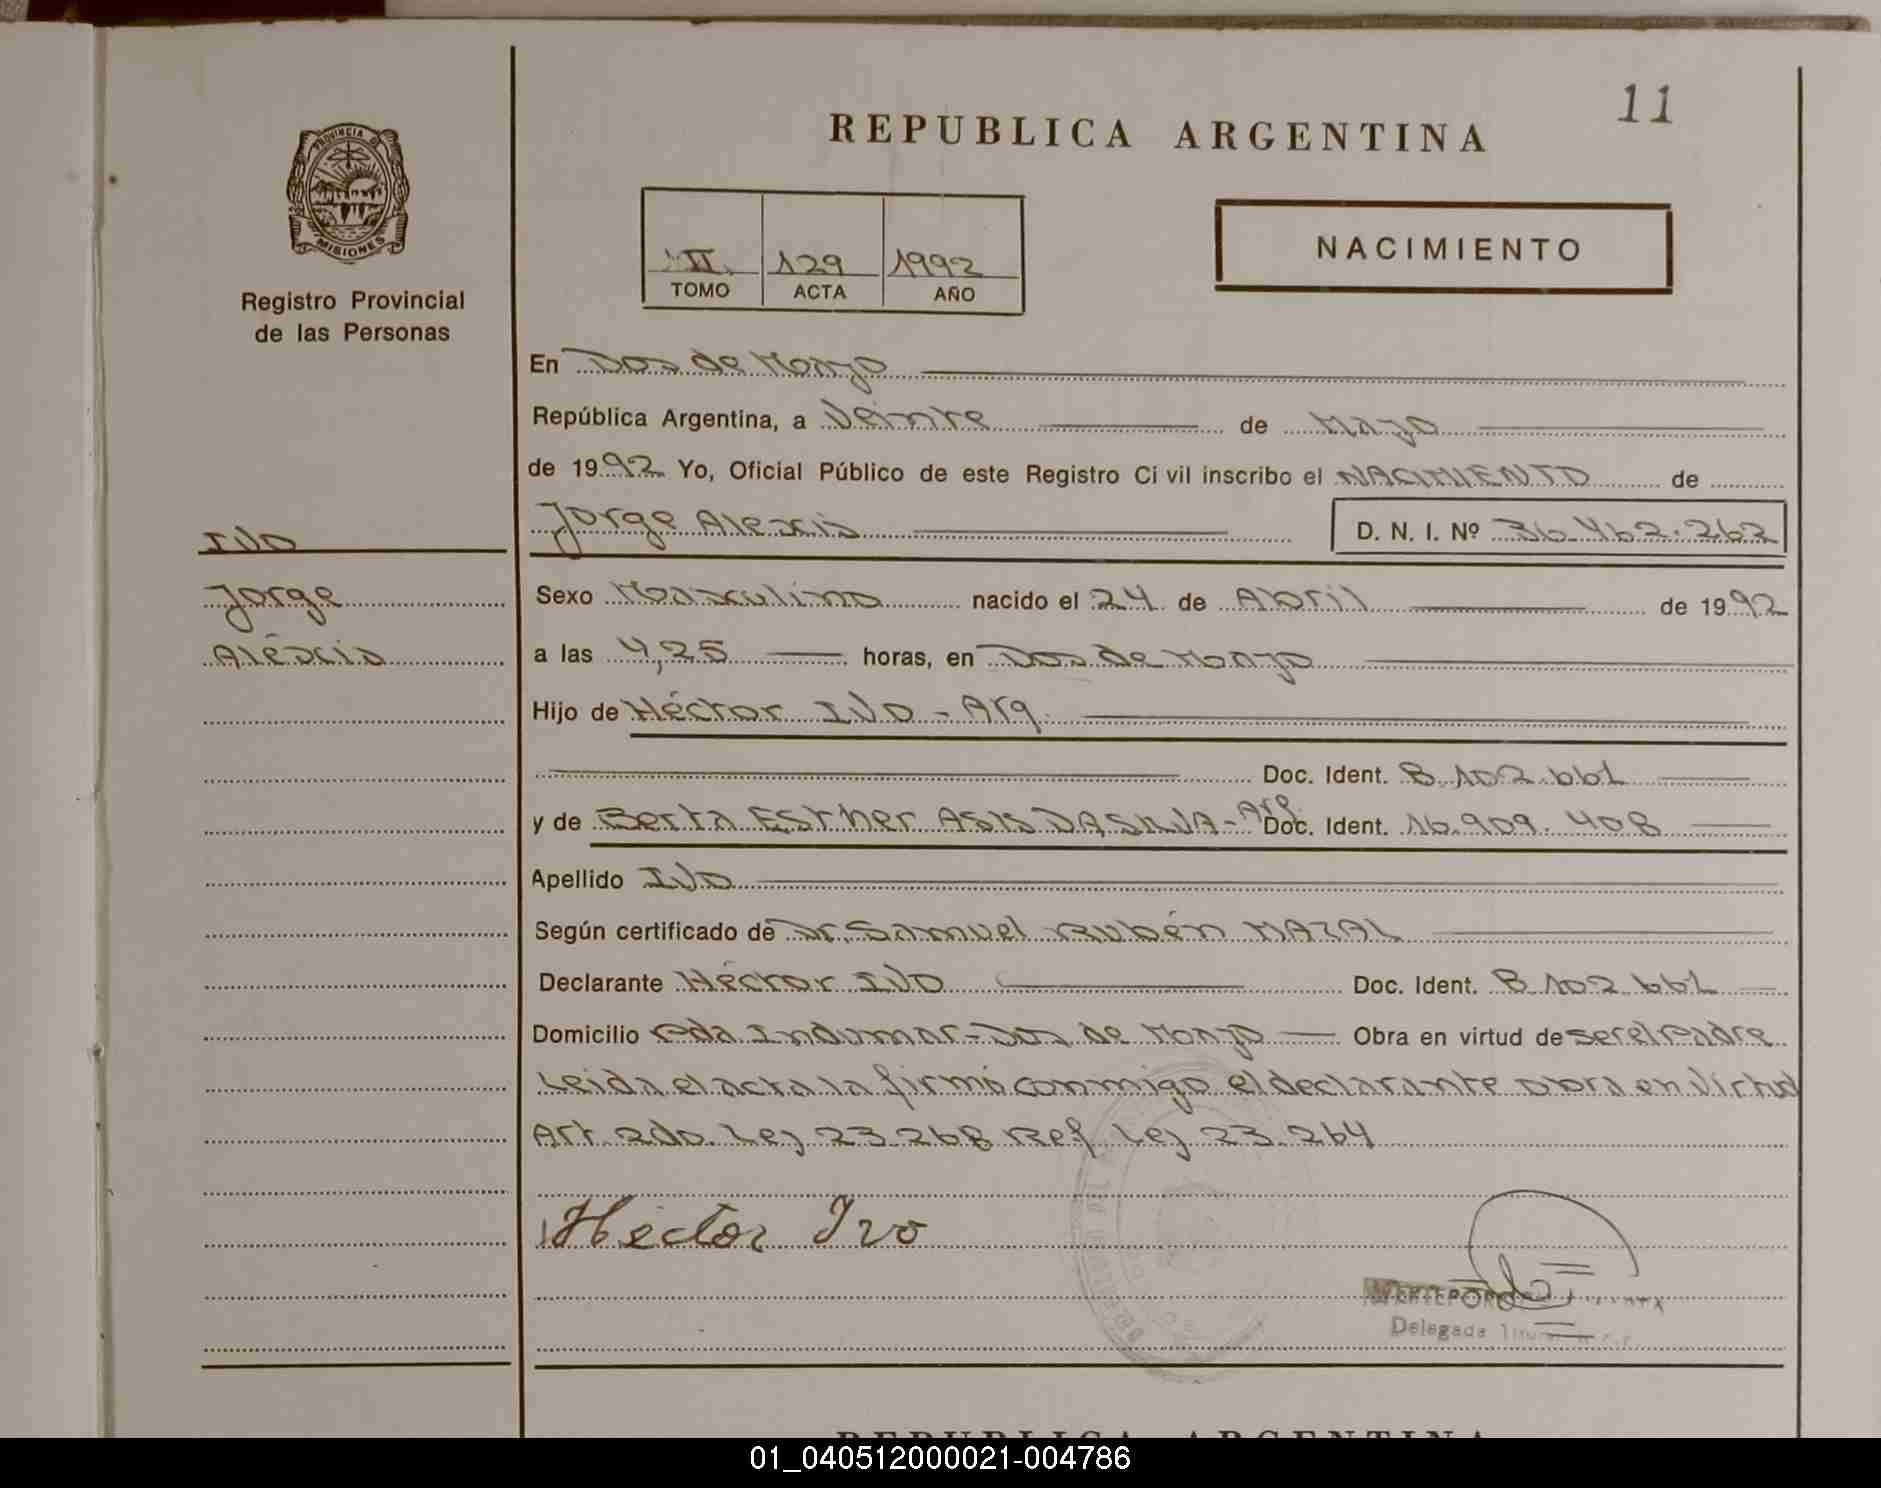 11
REPUBLICA ARGENTINA
PROVINCIA DE
MISIONES
Registro Provincial
de las Personas
II 129 1992
TOMO ACTA AÑO
NACIMIENTO
En Dos de Mayo
República Argentina, a Veinte de Mayo
de 1992 Yo, Oficial Público de este Registro Ci vil inscribo el NACIMIENTO de
Jorge Alexis D. N. I. Nº 36.462.262
IVO
Jorge
Aléxis
Sexo Masculino nacido el 24 de Abril de 1992
a las 4,25 horas, en Dos de Mayo
Hijo de Héctor IVO - Arg.
Doc. Ident. 8.102.661
y de Berta Esther ASIS DA SILVA - Arg. Doc. Ident. 16.909.408
Apellido IVO
Según certificado de Dr. Samuel Rubén MAZAL
Declarante Héctor IVO Doc. Ident. 8.102.661
Domicilio Pda. Indumar - Dos de Mayo Obra en virtud de ser el Padre
Leida el acta la firmó conmigo el declarante obra en virtud
Art. 2do. Ley 23.268 Ref. Ley 23.264
Héctor Ivo
Delegada
REPUBLICA ARGENTINA
01_040512000021-004786